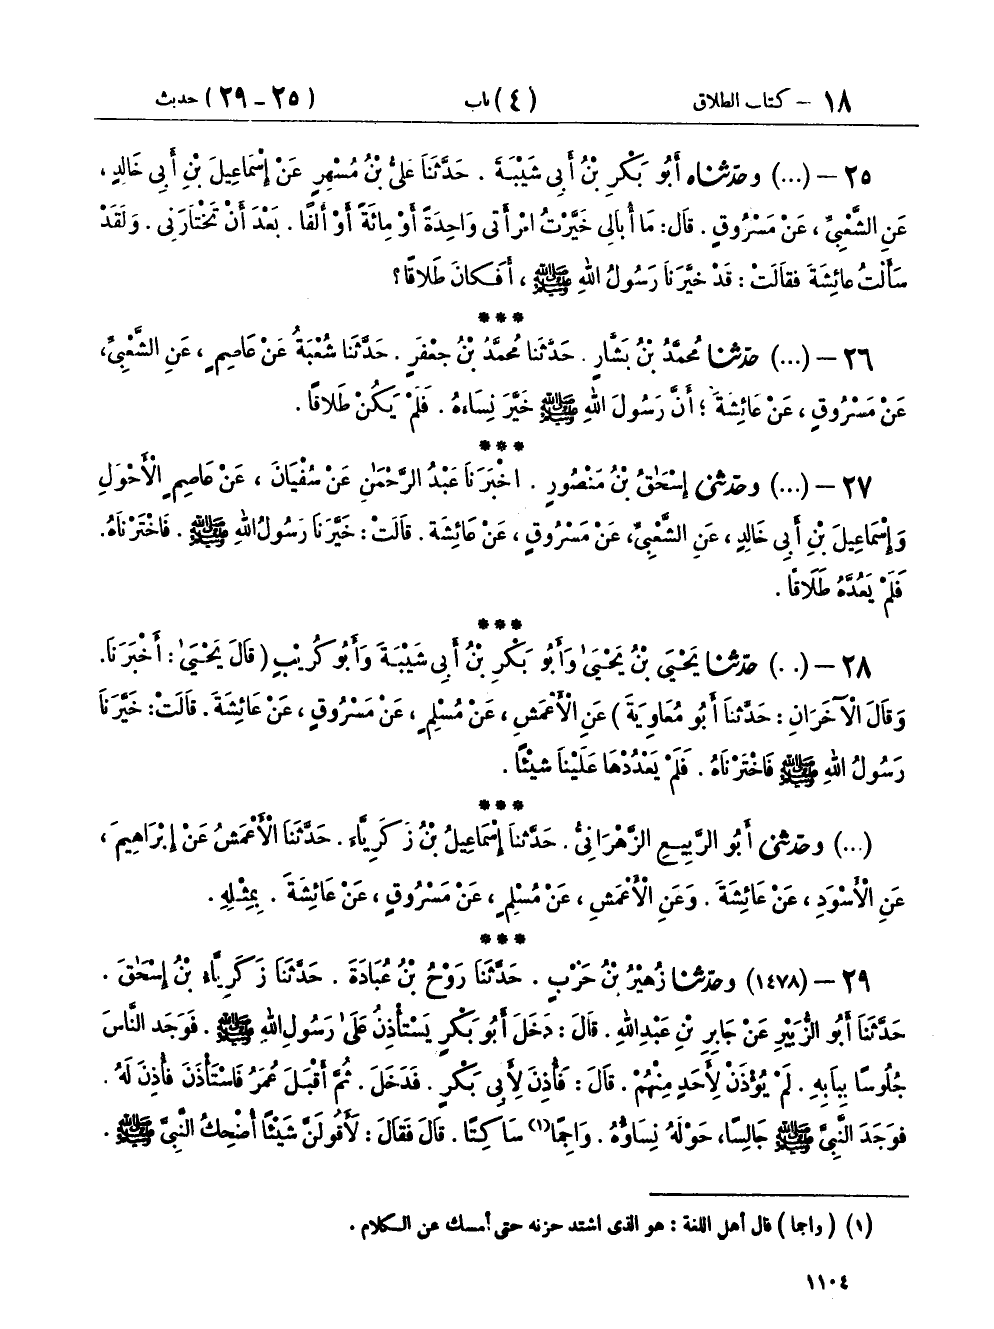 ١٨ – كتاب الطلاق (٤) باب (٢٥ – ٢٩) حديث
٢٥ – (...) وحَدَّثَنَاه أَبُو بَكْرِ بْنُ أَبِي شَيْبَةَ . حَدَّثَنَا عَلِيُّ بْنُ مُسْهِرٍ عَنْ إِسْمَاعِيلَ بْنِ أَبِي خَالِدٍ ،
عَنِ الشَّعْبِيِّ ، عَنْ مَسْرُوقٍ . قَالَ : مَا أُبَالِي خَيَّرْتُ امْرَأَتِي وَاحِدَةً أَوْ مِائَةً أَوْ أَلْفًا . بَعْدَ أَنْ تَخْتَارَنِي . وَلَقَدْ
سَأَلْتُ عَائِشَةَ فَقَالَتْ : قَدْ خَيَّرَنَا رَسُولُ اللهِ ﷺ ، أَفَكَانَ طَلَاقًا ؟
***
٢٦ – (...) حَدَّثَنَا مُحَمَّدُ بْنُ بَشَّارٍ . حَدَّثَنَا مُحَمَّدُ بْنُ جَعْفَرٍ . حَدَّثَنَا شُعْبَةُ عَنْ عَاصِمٍ ، عَنِ الشَّعْبِيِّ ،
عَنْ مَسْرُوقٍ ، عَنْ عَائِشَةَ ؛ أَنَّ رَسُولَ اللهِ ﷺ خَيَّرَ نِسَاءَهُ . فَلَمْ يَكُنْ طَلَاقًا .
***
٢٧ – (...) وحَدَّثَنِي إِسْحٰقُ بْنُ مَنْصُورٍ . أَخْبَرَنَا عَبْدُ الرَّحْمٰنِ عَنْ سُفْيَانَ ، عَنْ عَاصِمٍ الْأَحْوَلِ
وَإِسْمَاعِيلَ بْنِ أَبِي خَالِدٍ ، عَنِ الشَّعْبِيِّ، عَنْ مَسْرُوقٍ ، عَنْ عَائِشَةَ . قَالَتْ : خَيَّرَنَا رَسُولُ اللهِ ﷺ . فَاخْتَرْنَاهُ .
فَلَمْ يَعُدَّهُ طَلَاقًا .
***
٢٨ – (. .) حَدَّثَنَا يَحْيَىٰ بْنُ يَحْيَىٰ وَأَبُو بَكْرِ بْنُ أَبِي شَيْبَةَ وَأَبُو كُرَيْبٍ ( قَالَ يَحْيَىٰ : أَخْبَرَنَا.
وَقَالَ الْآخَرَانِ : حَدَّثَنَا أَبُو مُعَاوِيَةَ ) عَنِ الْأَعْمَشِ ، عَنْ مُسْلِمٍ ، عَنْ مَسْرُوقٍ ، عَنْ عَائِشَةَ . قَالَتْ : خَيَّرَنَا
رَسُولُ اللهِ ﷺ فَاخْتَرْنَاهُ . فَلَمْ يَعْدُدْهَا عَلَيْنَا شَيْئًا .
***
(...) وحَدَّثَنِي أَبُو الرَّبِيعِ الزَّهْرَانِيُّ . حَدَّثَنَا إِسْمَاعِيلُ بْنُ زَكَرِيَّاءَ . حَدَّثَنَا الْأَعْمَشُ عَنْ إِبْرَاهِيمَ ،
عَنِ الْأَسْوَدِ ، عَنْ عَائِشَةَ . وَعَنِ الْأَعْمَشِ ، عَنْ مُسْلِمٍ ، عَنْ مَسْرُوقٍ ، عَنْ عَائِشَةَ . بِمِثْلِهِ .
***
٢٩ – (١٤٧٨) وحَدَّثَنَا زُهَيْرُ بْنُ حَرْبٍ . حَدَّثَنَا رَوْحُ بْنُ عُبَادَةَ . حَدَّثَنَا زَكَرِيَّاءِ بْنُ إِسْحٰقَ .
حَدَّثَنَا أَبُو الزُّبَيْرِ عَنْ جَابِرِ بْنِ عَبْدِ اللهِ . قَالَ : دَخَلَ أَبُو بَكْرٍ يَسْتَأْذِنُ عَلَىٰ رَسُولِ اللهِ ﷺ . فَوَجَدَ النَّاسَ
جُلُوسًا بِبَابِهِ . لَمْ يُؤْذَنْ لِأَحَدٍ مِنْهُمْ . قَالَ : فَأُذِنَ لِأَبِي بَكْرٍ . فَدَخَلَ . ثُمَّ أَقْبَلَ عُمَرُ فَاسْتَأْذَنَ فَأُذِنَ لَهُ .
فَوَجَدَ النَّبِيَّ ﷺ جَالِسًا، حَوْلَهُ نِسَاؤُهُ . وَاجِمًا(١) سَاكِتًا . قَالَ فَقَالَ : لَأَقُولَنَّ شَيْئًا أُضْحِكُ النَّبِيَّ ﷺ .
(١) ( واجما ) قال أهل اللغة : هو الذى اشتد حزنه حتى أمسك عن الكلام .
١١٠٤